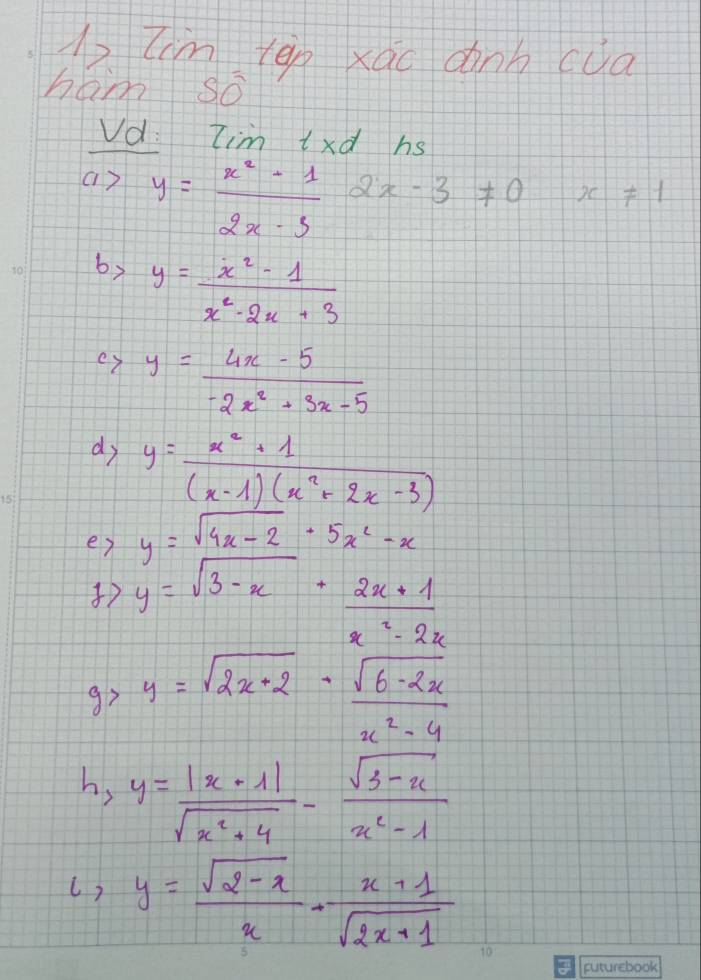 1> Tìm tập xác định của
hàm số
Vd: Tìm txd hs
a> y = \frac{x² - 1}{2x - 3} 2x - 3 ≠ 0 x ≠ 1
b> y = \frac{x² - 1}{x² - 2x + 3}
c> y = \frac{4x - 5}{-2x² + 3x - 5}
d> y = \frac{x² + 1}{(x - 1)(x² + 2x - 3)}
e> y = \sqrt{4x - 2} + 5x² - x
f> y = \sqrt{3 - x} + \frac{2x + 1}{x² - 2x}
g> y = \sqrt{2x + 2} + \frac{\sqrt{6 - 2x}}{x² - 4}
h, y = \frac{|x + 1|}{\sqrt{x² + 4}} - \frac{\sqrt{3 - x}}{x² - 1}
i, y = \frac{\sqrt{2 - x}}{x} + \frac{x + 1}{\sqrt{2x + 1}}
5
10
15
5 10
futurebook